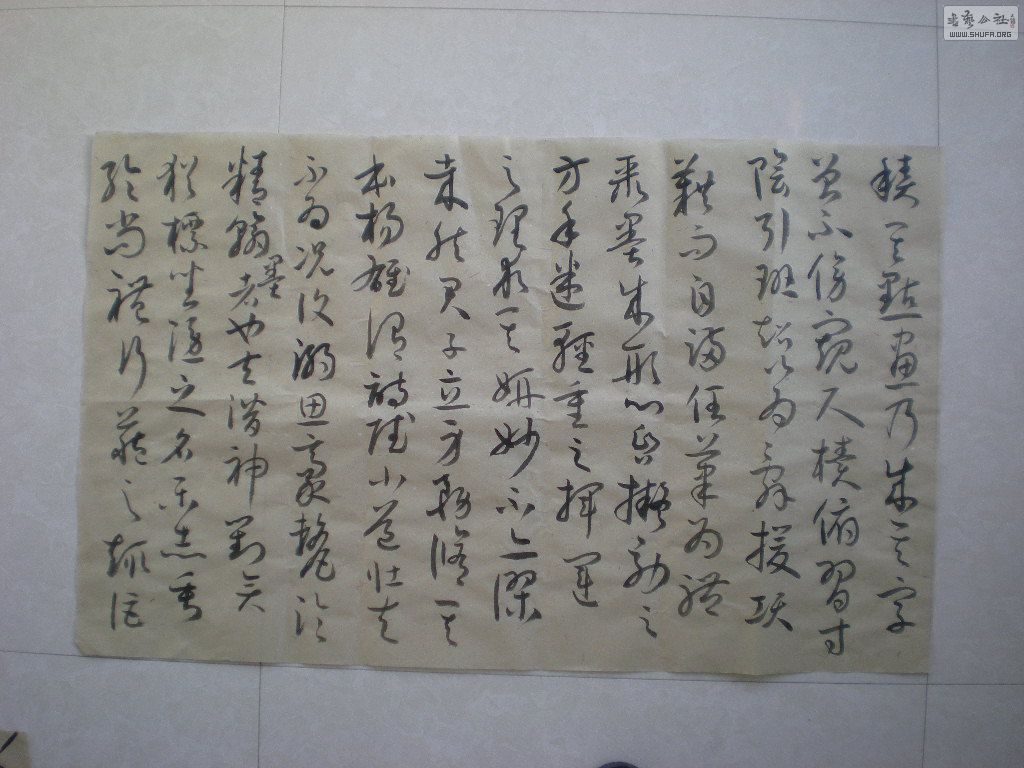 積其點畫乃成其字
曾不傍窺尺櫝俯習寸
陰引班超以為辭援項
籍而自滿任筆為體
聚墨成形心昏擬效之
方手迷揮運
之理求其妍妙不亦謬
哉然君子立身務修其
本楊雄謂詩賦小道壯夫
不為況復溺思毫釐淪
精翰墨者也夫潛神對奕
猶標坐隱之名樂志垂
綸尚體行藏之趣詎
書藝公社
WWW.SHUFA.ORG